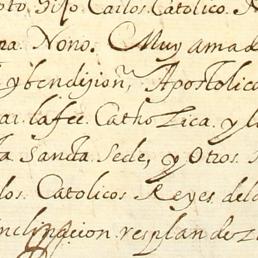 Hijo Carlos Catolico.
Nono. Muy amad
y bendijion, Apostolica
la fee Catholica. y l
Sancta Sede, y Otros.
los. Catolicos Reyes del
inclinacion resplandez